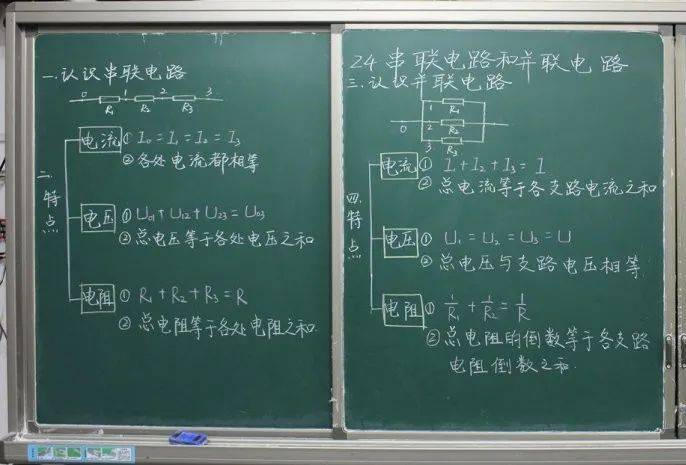 一.认识串联电路
0 1 2 3
R₁ R₂ R₃
二.特点
电流 ① I₀ = I₁ = I₂ = I₃
② 各处电流都相等
电压 ① U₀₁ + U₁₂ + U₂₃ = U₀₃
② 总电压等于各处电压之和
电阻 ① R₁ + R₂ + R₃ = R
② 总电阻等于各处电阻之和
2.4 串联电路和并联电路
三.认识并联电路
1 R₁
0 2 R₂
3 R₃
四.特点
电流 ① I₁ + I₂ + I₃ = I
② 总电流等于各支路电流之和
电压 ① U₁ = U₂ = U₃ = U
② 总电压与支路电压相等
电阻 ① 1/R₁ + 1/R₂ = 1/R
② 总电阻的倒数等于各支路
电阻倒数之和.